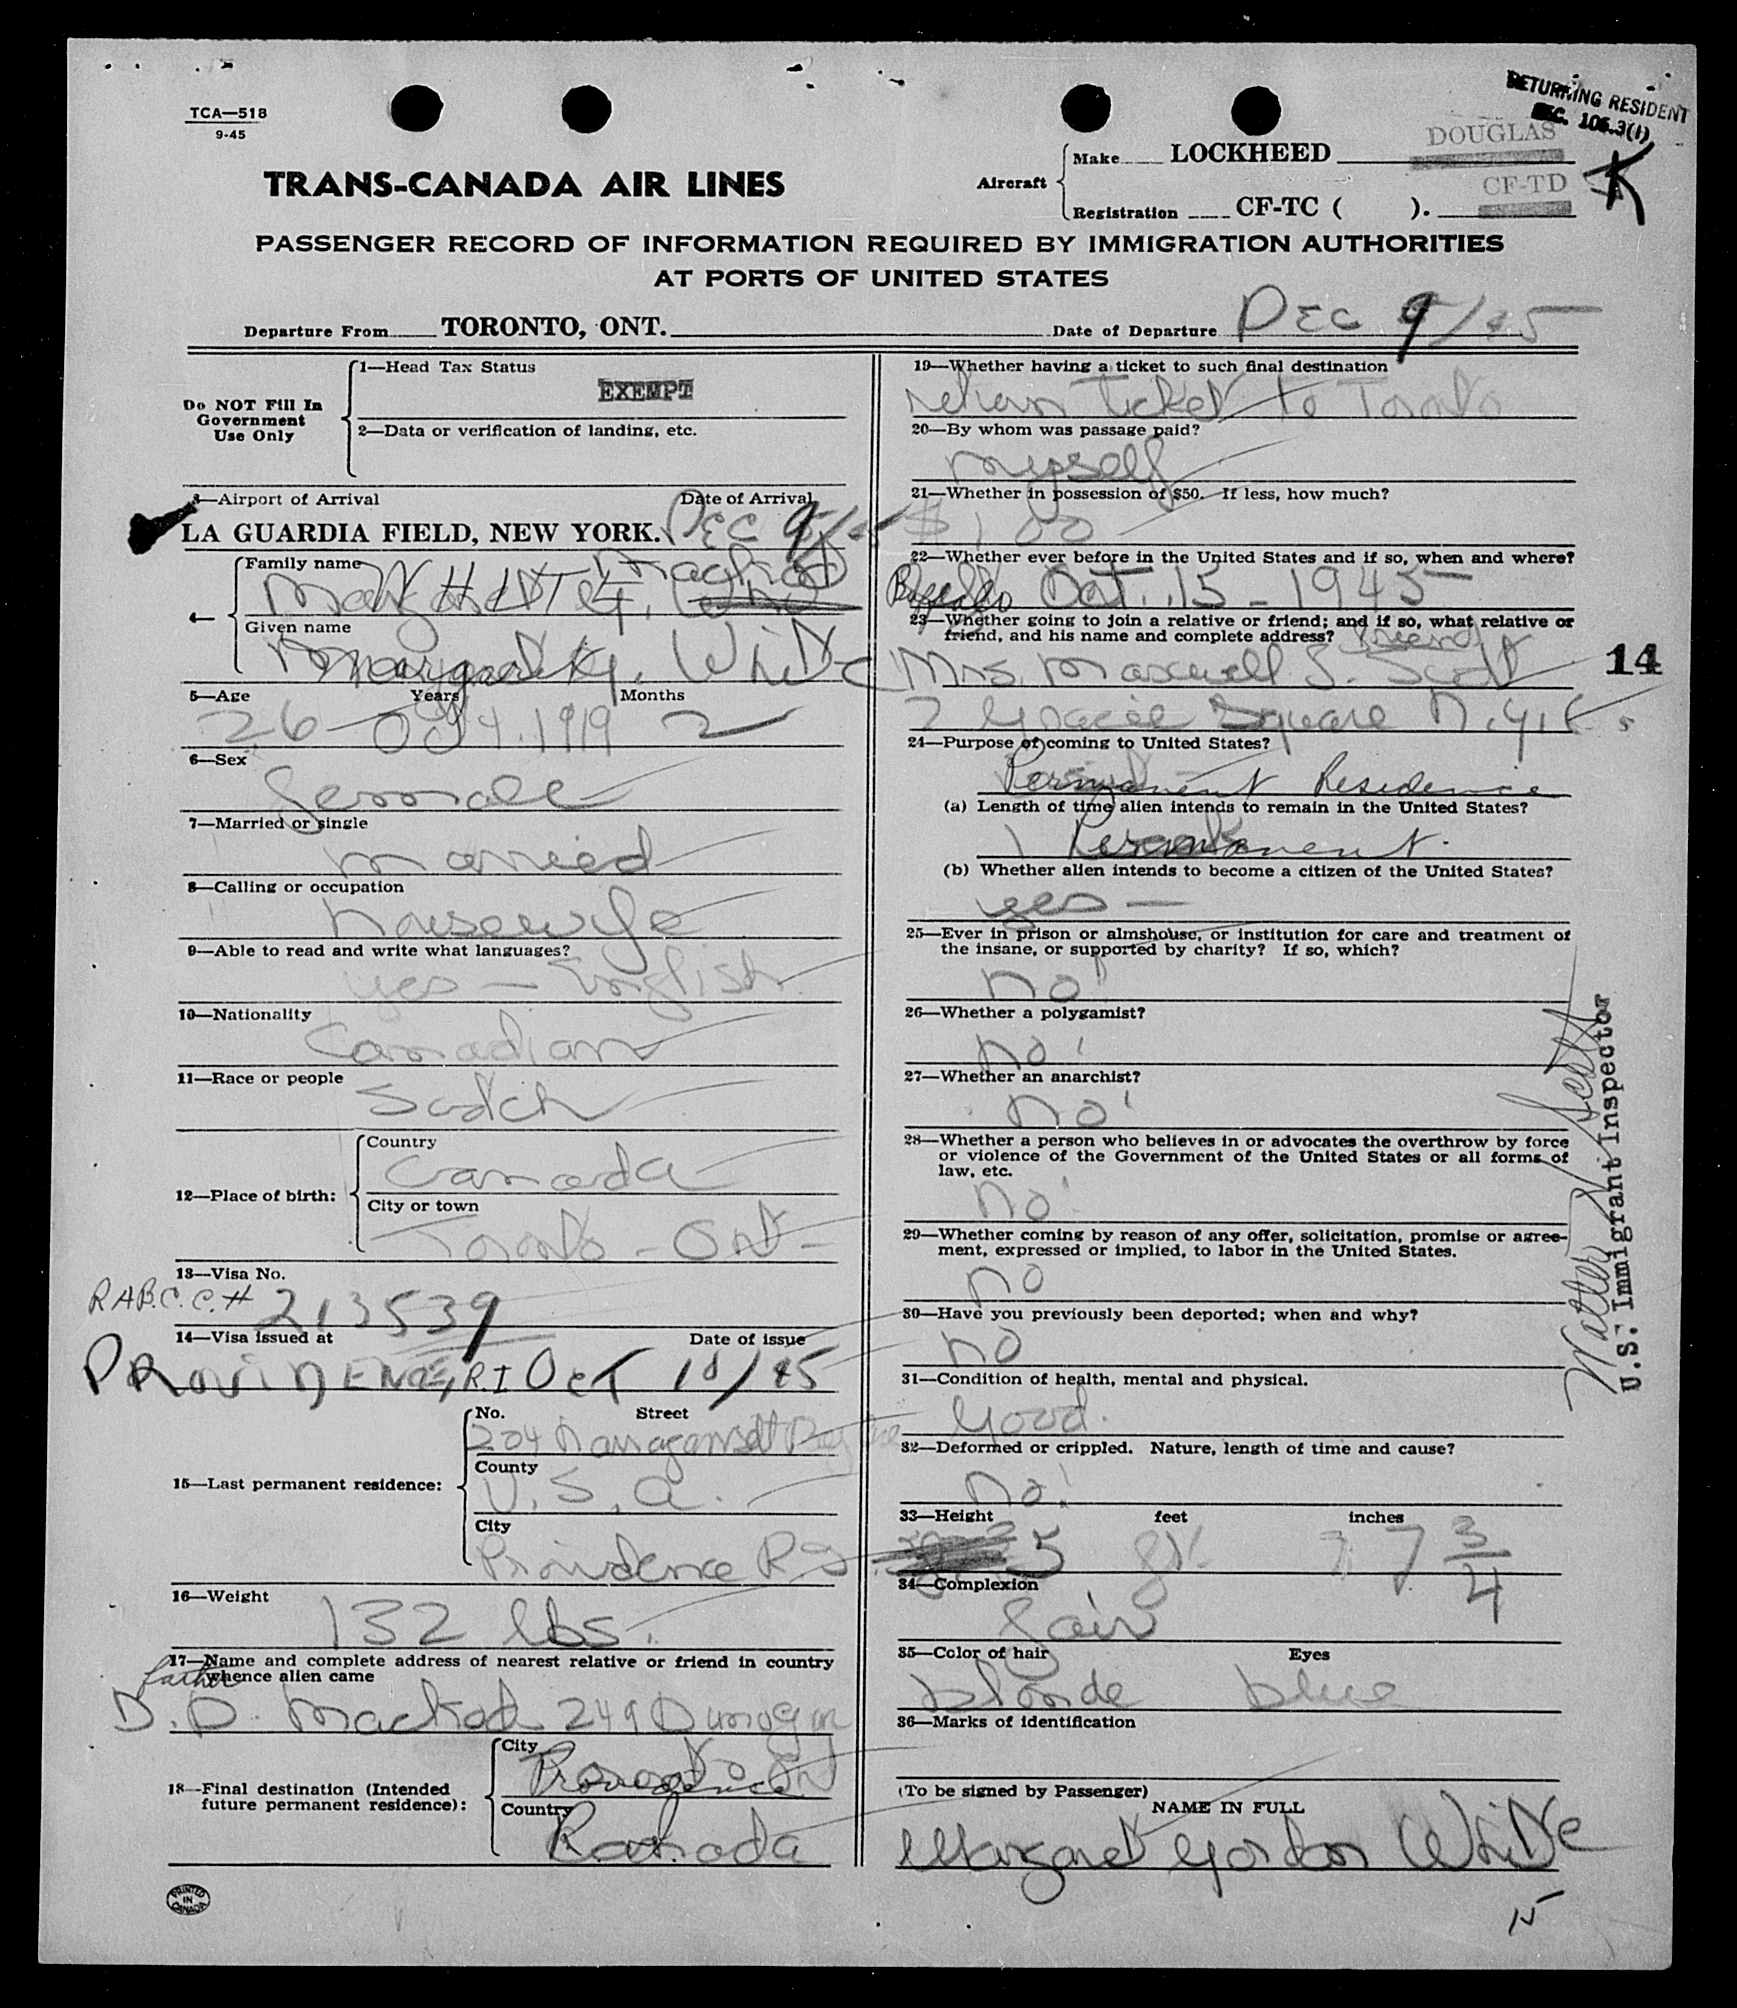 TCA—518
9-45
RETURNING RESIDENT
SEC. 106.3(1)
DOUGLAS
Make LOCKHEED
TRANS-CANADA AIR LINES
Aircraft
CF-TD
K
Registration CF-TC ( ).
PASSENGER RECORD OF INFORMATION REQUIRED BY IMMIGRATION AUTHORITIES
AT PORTS OF UNITED STATES
Departure From TORONTO, ONT.
Date of Departure DEC 9/45
Do NOT Fill In
Government
Use Only
1—Head Tax Status
EXEMPT
2—Data or verification of landing, etc.
3—Airport of Arrival Date of Arrival
LA GUARDIA FIELD, NEW YORK. DEC 9/45
4—
Family name
WHITE
Given name
Margaret G. White
5—Age Years Months
26 Oct 4. 1919 2
6—Sex
Female
7—Married or single
married
8—Calling or occupation
housewife
9—Able to read and write what languages?
yes — English
10—Nationality
Canadian
11—Race or people
Scotch
12—Place of birth:
Country
Canada
City or town
Toronto - Ont -
13—Visa No.
R A B.C. C. # 213539
14—Visa issued at Date of issue
PROVIDENCE, R.I Oct 10/45
15—Last permanent residence:
No. Street
204 Narragansett
County
U.S.A.
City
Providence R I
16—Weight
132 lbs.
17—Name and complete address of nearest relative or friend in country
whence alien came
father
D. D. 249
18—Final destination (Intended
future permanent residence):
City
Providence
Country
Canada
PRINTED
IN
CANADA
19—Whether having a ticket to such final destination
return ticket to Toronto
20—By whom was passage paid?
myself
21—Whether in possession of $50. If less, how much?
$100
22—Whether ever before in the United States and if so, when and where?
Buffalo Oct. 15 - 1945
23—Whether going to join a relative or friend; and if so, what relative or
friend, and his name and complete address?
friend
Mrs. Maxwell S. Scott
7 Gracie Square N.Y.
14
24—Purpose of coming to United States?
Permanent Residence
(a) Length of time alien intends to remain in the United States?
Permanent.
(b) Whether alien intends to become a citizen of the United States?
yes —
25—Ever in prison or almshouse, or institution for care and treatment of
the insane, or supported by charity? If so, which?
no!
26—Whether a polygamist?
no!
27—Whether an anarchist?
no!
28—Whether a person who believes in or advocates the overthrow by force
or violence of the Government of the United States or all forms of
law, etc.
no!
29—Whether coming by reason of any offer, solicitation, promise or agree-
ment, expressed or implied, to labor in the United States.
no
30—Have you previously been deported; when and why?
no
31—Condition of health, mental and physical.
Good.
32—Deformed or crippled. Nature, length of time and cause?
no!
33—Height feet inches
5 ft. 7 3/4
34—Complexion
fair
35—Color of hair Eyes
blonde blue
36—Marks of identification
(To be signed by Passenger)
NAME IN FULL
Margaret Gordon White
15
Walter Scott
U.S. Immigrant Inspector